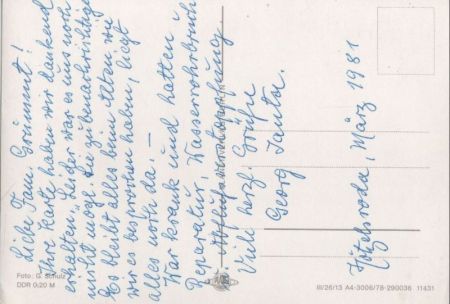 Liebe Frau Grimmt!
Ihre Karte haben wir dankend
erhalten. Leider war es uns noch
nicht mögl. Sie zu benachrichtigen
Es bleibt alles beim Alten wie
wir es besprochen haben, liegt
alles noch da. –
War krank und hatten
Reparatur, Wasserrohrbruch
Viele herzl. Grüße
Georg
März 1981
Foto: G. Schulz
DDR 0,20 M
III/26/13 A4-3006/78-290036 11431